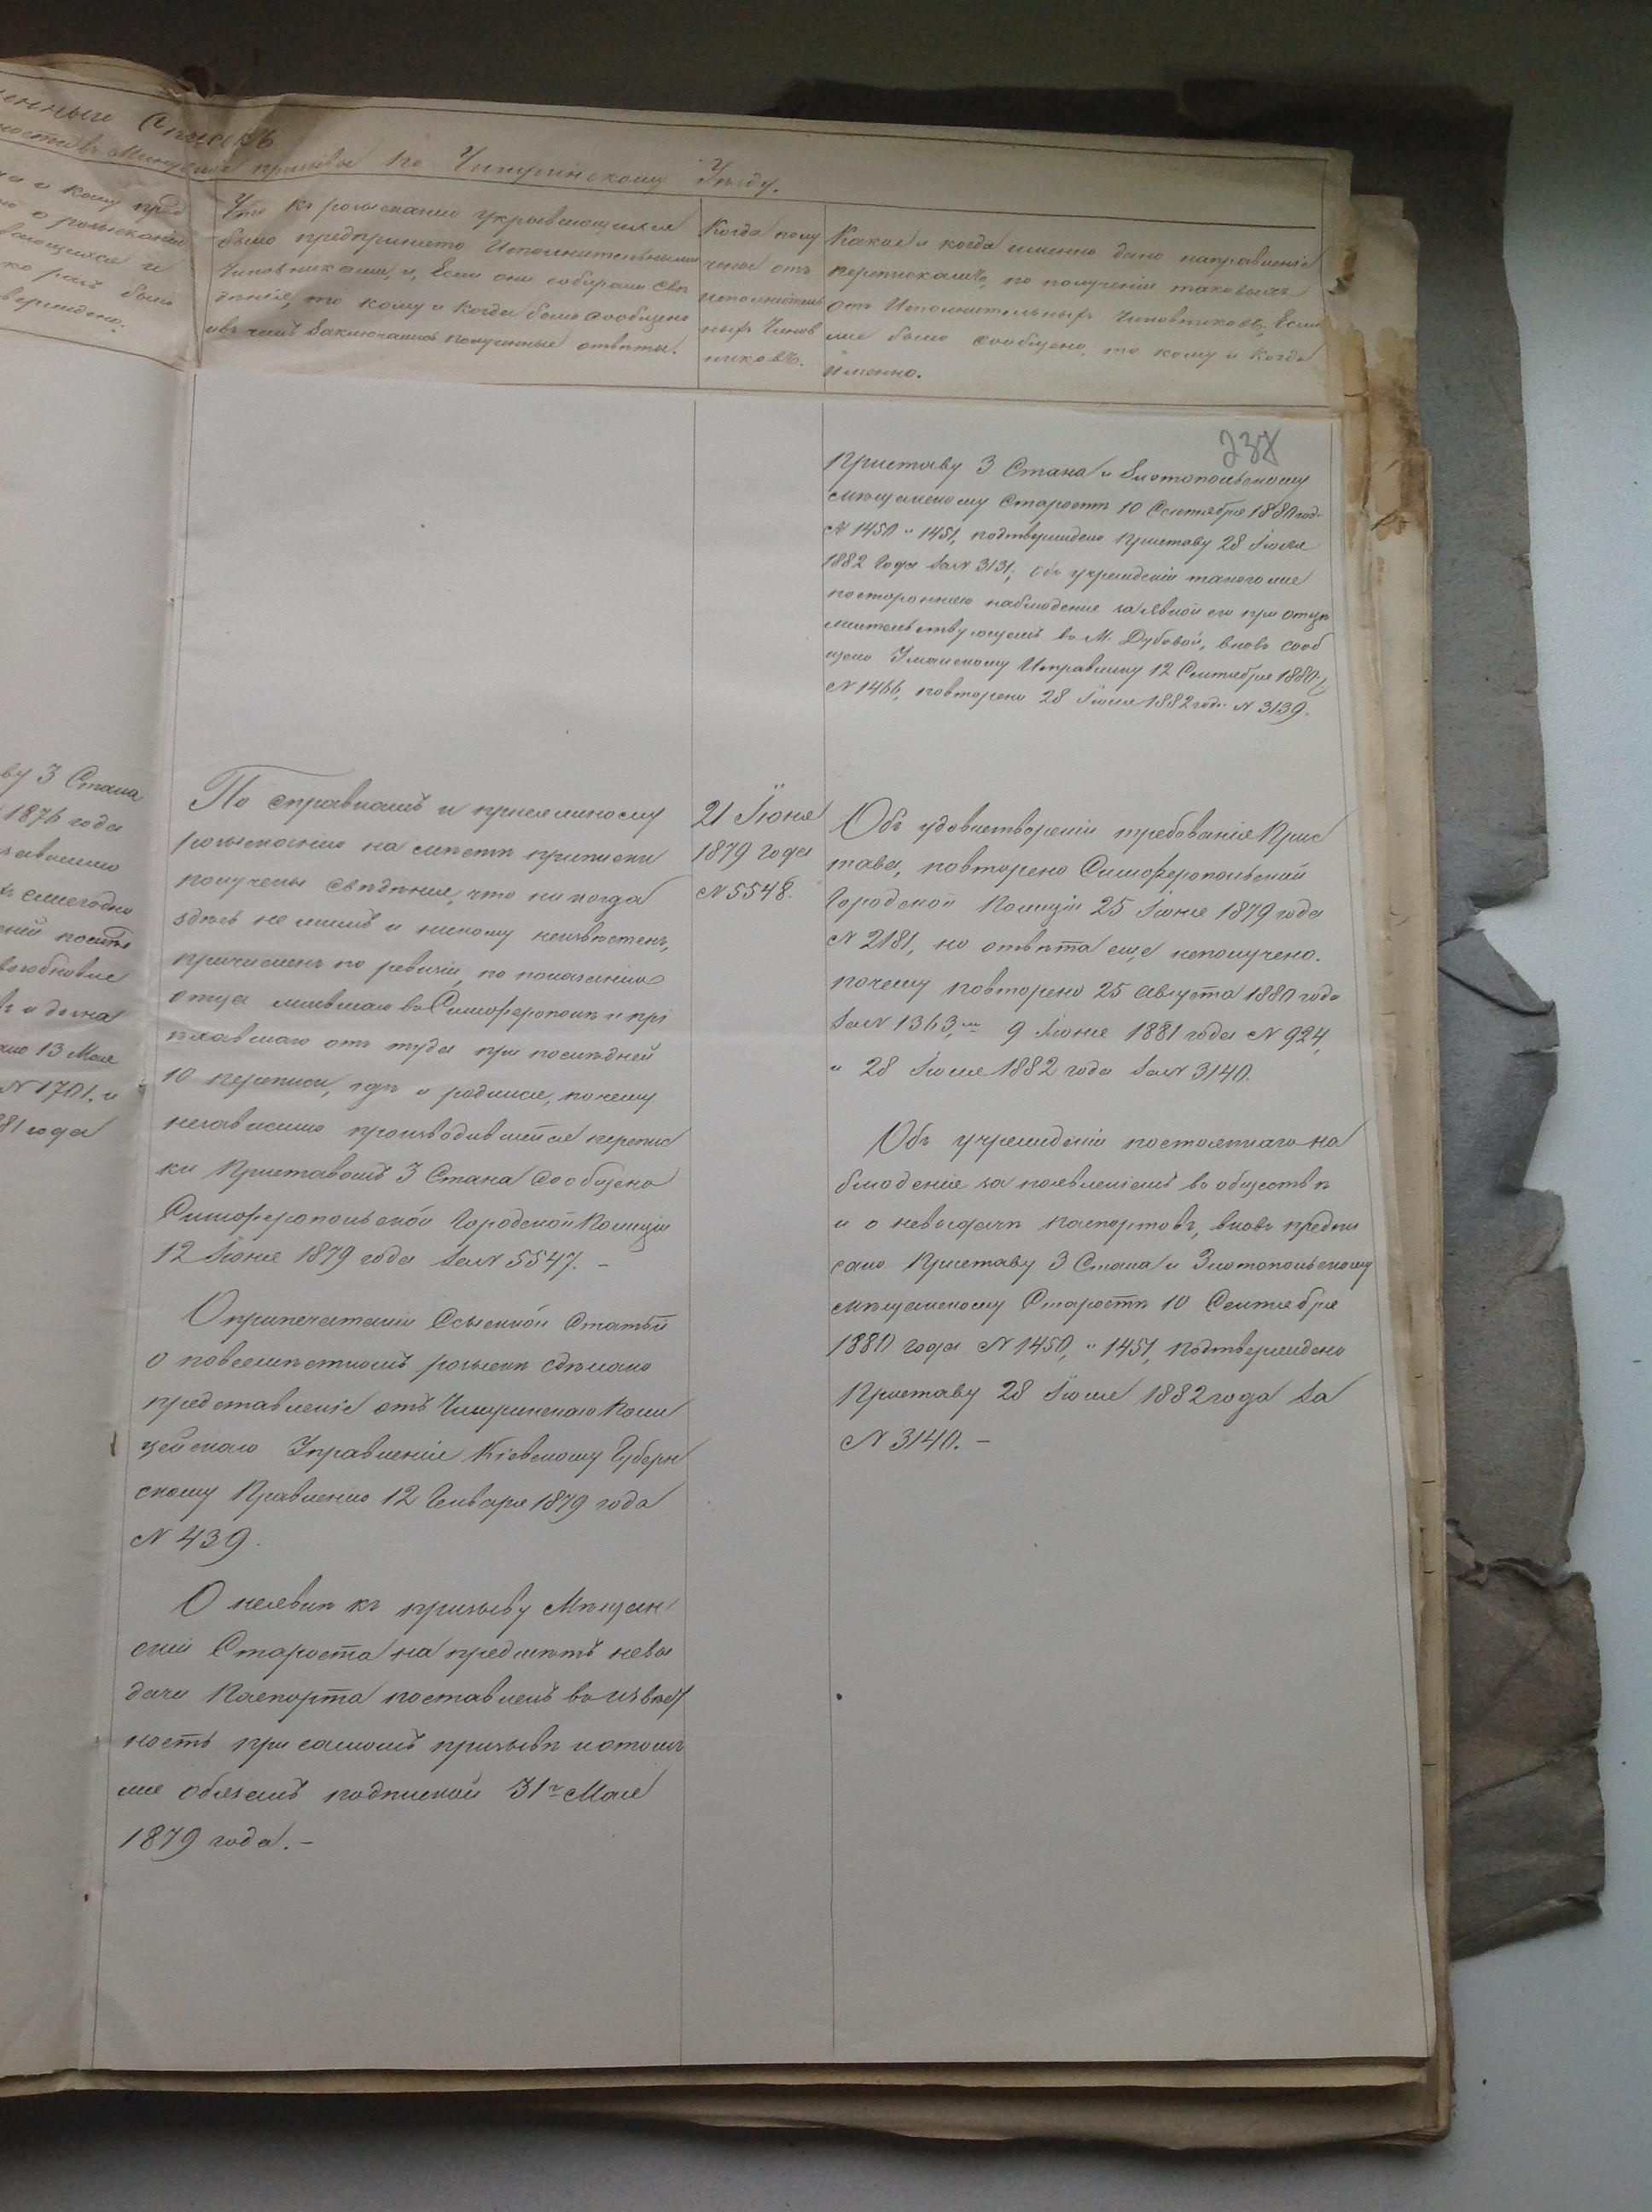 енный Списокъ
по Чигиринскому Уѣзду.
кому пред
о розысканіи
вающихся и
ко разъ было
верждено.
Что къ розысканію укрывающихся
было предпринято Исполнительными
Чиновниками, и, Если они собирали Свѣ
денія, то кому и Когда было сообщено
и въ чемъ Заключались полученные отвѣты.
Когда полу
чены отъ
Исполнитель
ныхъ Чинов
никовъ.
Какое и когда именно дано направленіе
перепискамъ, по полученіи таковыхъ
отъ Исполнительныхъ Чиновниковъ; Если
же было сообщено, то кому и Когда
Именно.
238
Приставу 3 Стана и Златопольскому
мѣщанскому Старостѣ 10 Сентября 1880 год.
N 1450 и 1451, подтверждено Приставу 28 Іюля
1882 Года За N 3131; Объ учрежденіи такого же
постороннею наблюденія за явкой его при отцѣ
жительствующемъ въ М. Дубовой, вновь сооб
щено Уманскому Исправнику 12 Сентября 1880 г.
N 1466, повторено 28 Іюля 1882 год. N 3139.
ву 3 Стана
1876 года
ежегодно
возобновле
и дочна
но 13 Мая
N 1701. и
81 года
По справкамъ и приселяному
розысканію на мѣстѣ приписки
получены свѣдѣнія, что никогда
здѣсь не жилъ и никому неизвѣстенъ,
причисленъ по ревизіи, по показанію
отца жившаго въ Симферополѣ и прі
ѣхавшаго отъ туда при послѣдней
10 переписи, гдѣ и родился, почему
независимо производившейся перепис
ки Приставомъ 3 Стана Сообщено
Симферопольской Городской Полиціи
12 Іюня 1879 года За N 5547. –
О припечатаніи Ссыскной Статьи
о повсемѣстномъ розыскѣ сдѣлано
представленіе отъ Чигиринскаго Поли
цейскаго Управленія Кіевскому Губерн
скому Правленію 12 Генваря 1879 года
N 439.
О неявкѣ къ призыву Мѣщан
скій Староста на предметъ невы
дачи Паспорта поставленъ въ извѣст
ность при самомъ призывѣ и о томъ
же обязанъ подпиской 31го Мая
1879 года. –
21 Іюня
1879 года
N 5548.
Объ удовлетвореніи требованія Прис
тава, повторено Симферопольской
Городской Полиціи 25 Іюня 1879 года
N 2181, но отвѣта еще неполучено.
почему повторено 25 Августа 1880 года
За N 1363, 9 Іюня 1881 года N 924,
и 28 Іюля 1882 года За N 3140.
Объ учрежденіи постояннаго на
блюденія за появленіемъ въ обществѣ
и о невыдачѣ паспортовъ, вновь предпи
сано Приставу 3 Стана и Златопольскому
мѣщанскому Старостѣ 10 Сентября
1880 года N 1450, и 1451, Подтверждено
Приставу 28 Іюля 1882 года За
N 3140. –